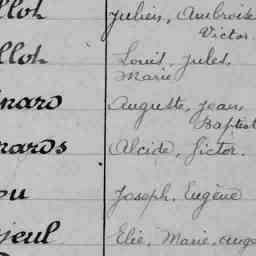 llot Julien, Ambroise
Victor.
llot Louis, Jules,
Marie
nard Auguste, Jean
Baptist
nards Alcide, Victor.
ou Joseph, Eugène
jeul Elie, Marie, Auge